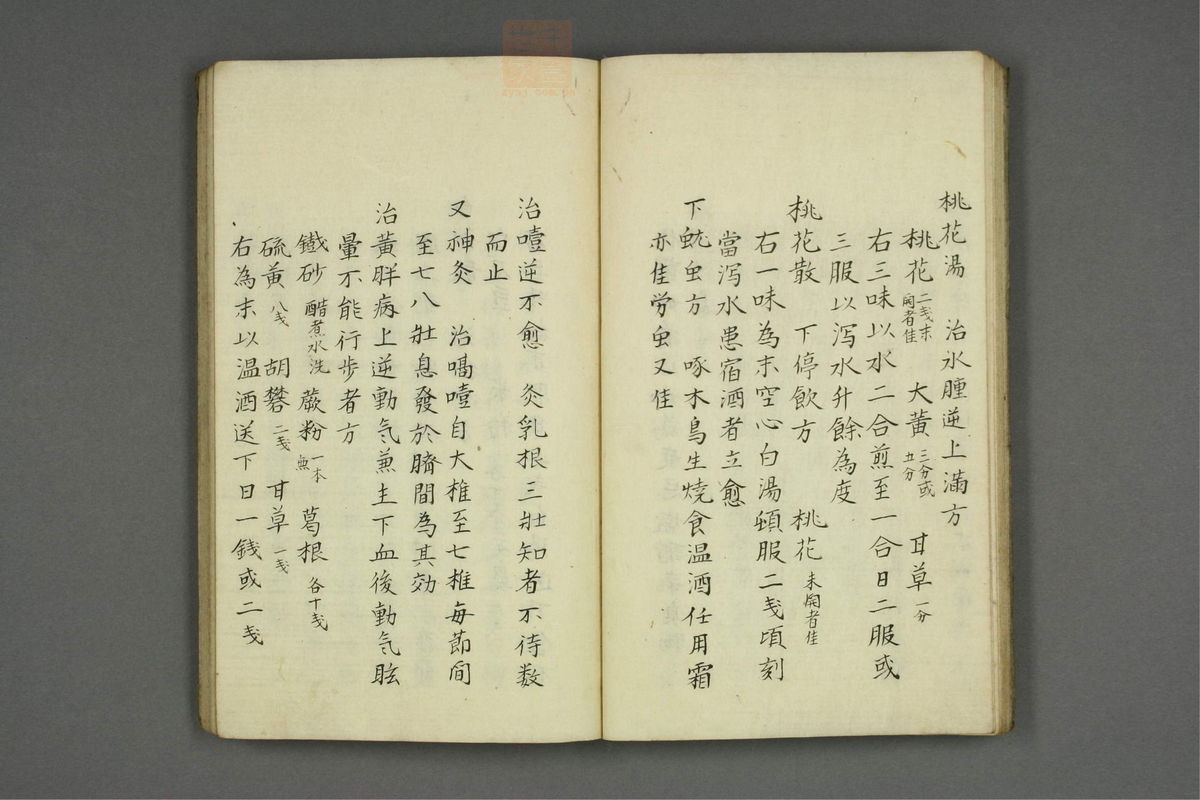 桃花湯　治水腫逆上滿方
桃花二戔末開者佳　大黃三分或五分　甘草一分
右三味以水二合煎至一合日二服或
三服以瀉水升餘為度
桃花散　下停飲方　桃花未開者佳
右一味為末空心白湯頓服二戔頃刻
當瀉水患宿酒者立愈
下虫方　啄木鳥生燒食温酒任用霜
亦佳労虫又佳
治噎逆不愈　灸乳根三壯知者不待数
而止
又神灸　治噶噎自大椎至七椎每節間
至七八壯息發於臍間為其効
治黃胖病上逆動气兼主下血後動气眩
暈不能行步者方
鐵砂醋煮水洗　蕨粉一本無　葛根各十戔
硫黃八戔　胡礬二戔　甘草一戔
右為末以温酒送下日一銭或二戔